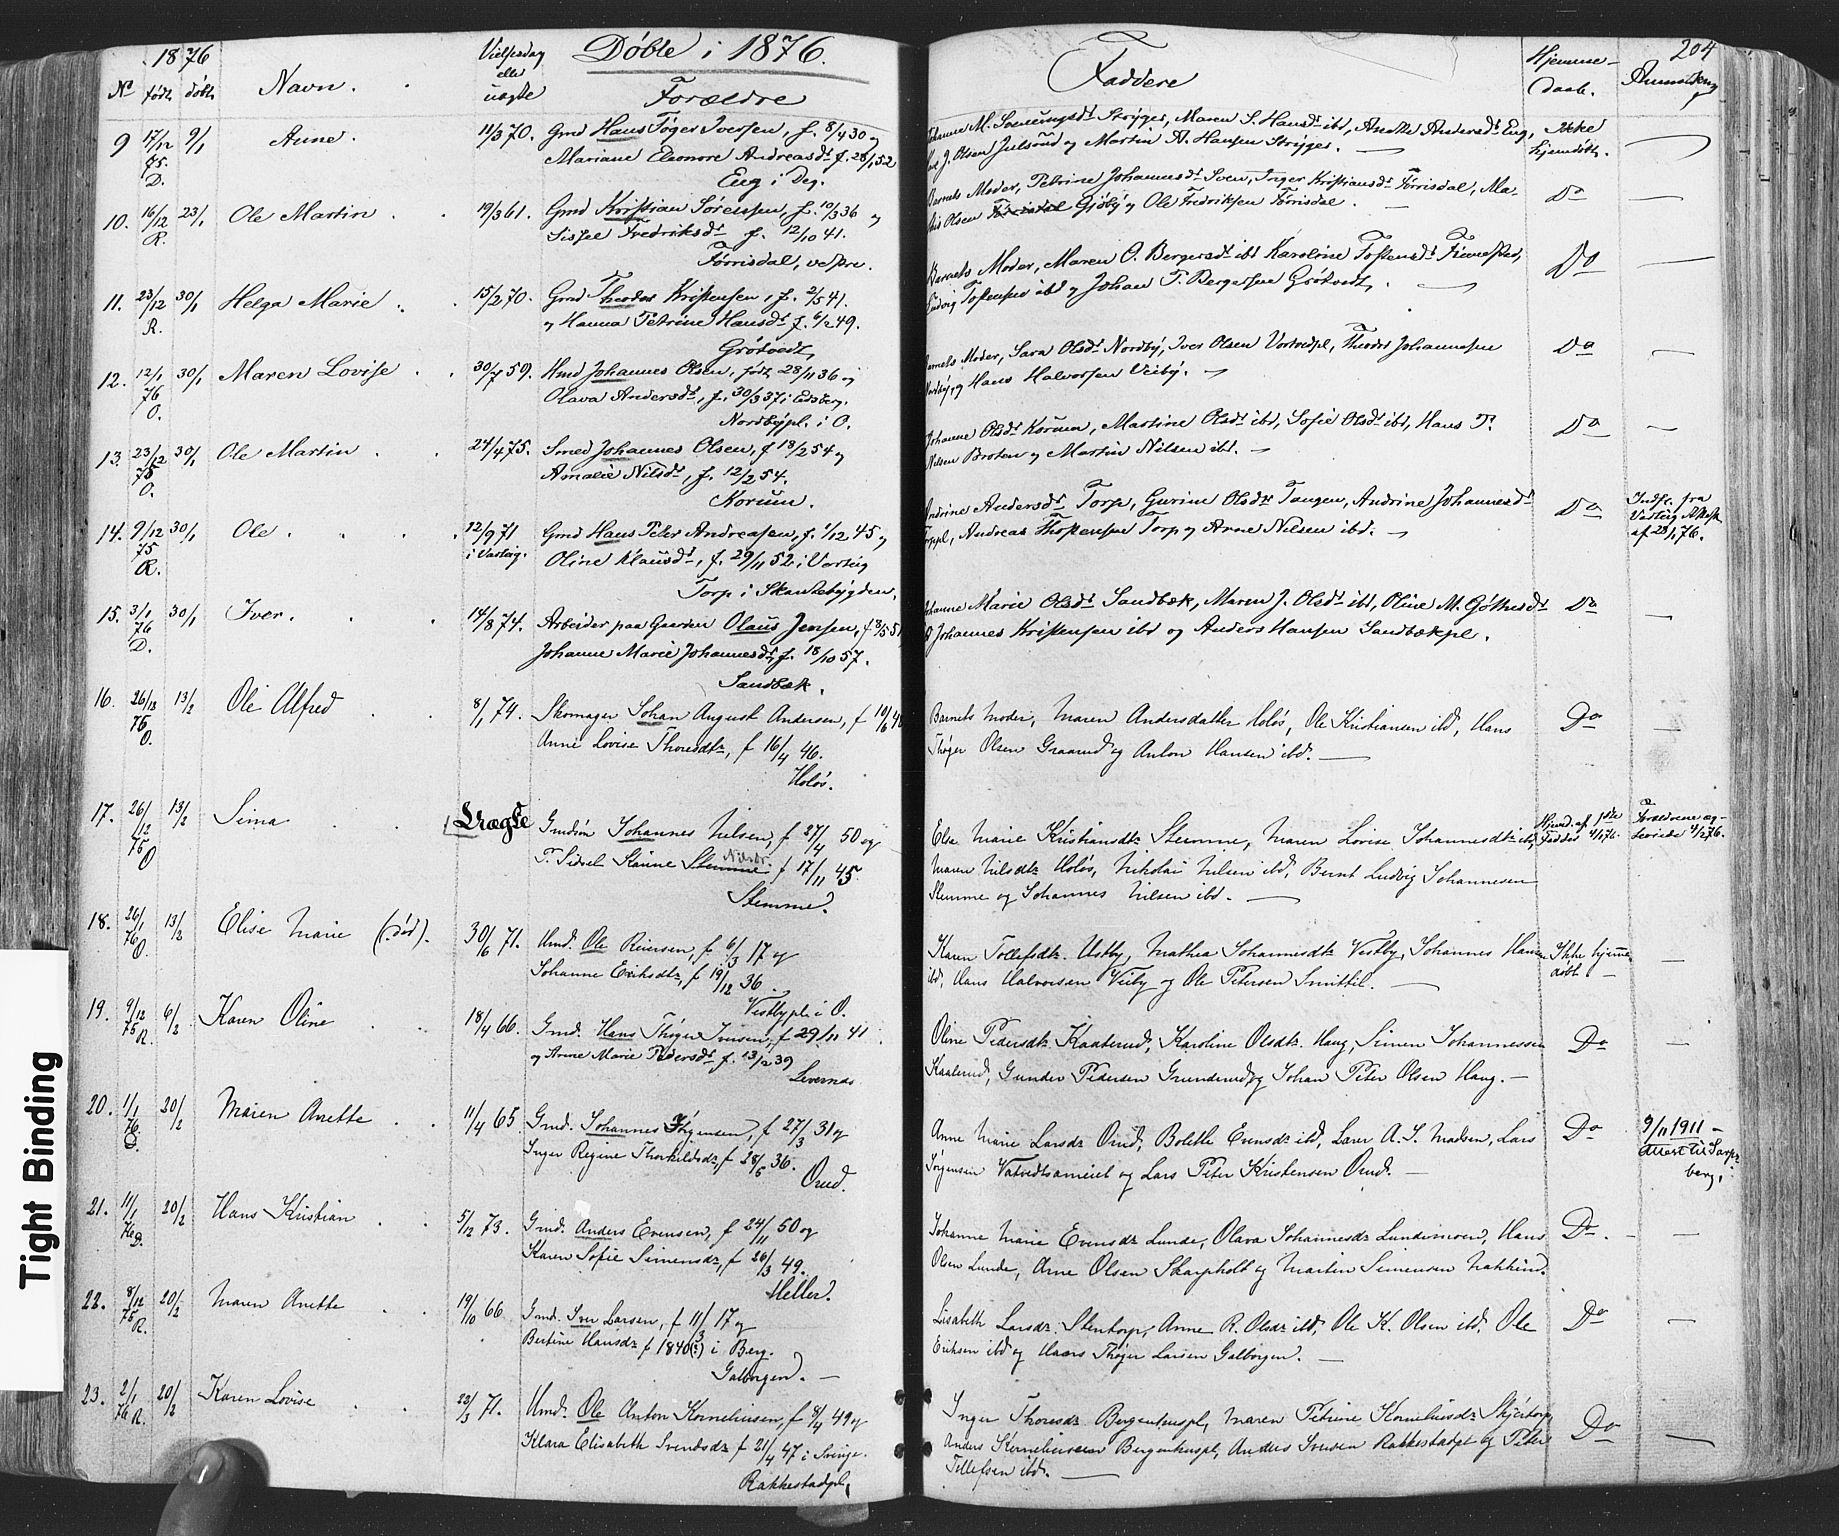 1876 Døbte i 1876.
Nº født døbt Navn. Vielsesdag eller uægte Forældre
9 17/12 75. D. 9/1 Anne. 11/3 70. Gmd Hans Tøger Iversen, f. 8/4 30 og
Mariane Eleonore Andreasdt f. 28/1 52
Eng i Deg.
10. 16/12 R. 23/1 Ole Martin 19/3 61. Gmd Kristian Sørensen, f. 10/3 36 og
Sissel Fredriksdt f. 12/10 41.
Tørrisdal, vestre.
11. 23/12 R. 30/1 Helga Marie 15/2 70. Gmd Theodor Kristensen, f. 2/5 41.
og Hanna Petrine Hansdt f. 6/2 49.
Grøtvedt,
12. 12/1 76 O. 30/1 Maren Lovise 30/7 59. Hmd Johannes Olsen, født 28/11 36 og
Olava Andersdt, f. 30/3 37 i Edsberg.
Nordbypl. i O.
13. 23/12 75 O. 30/1 Ole Martin 24/4 75. Smed Johannes Olsen, f 18/2 54 og
Amalie Nilsdt, f. 12/2 54.
Korum.
14. 9/12 75 R. 30/1 Ole 12/9 71 i Varteig. Gmd Hans Peter Andreasen, f. 1/12 45 og
Oline Klausdt, f. 29/11 52 i Varteig
Torp i Skantebygden.
15. 3/1 76 D. 30/1 Iver. 14/8 74. Arbeider paa Gaarden Olaus Jensen, f 8/5 51
Johanne Marie Johannesdt, f. 18/10 57.
Sandbæk.
16. 26/12 75 O. 13/2 Ole Alfred 8/1 74. Skomager Johan August Andersen, f 10/6 48
Anne Lovise Thoresdtr, f 16/4 46.
Holøs.
17. 26/12 75 O 13/2 Sina Uægte Gmdsøn Johannes Nilsen, f 27/4 50 og
P. Sidsel Stemme Nilsdt. f 17/11 45
Stemme.
18. 26/1 76 O. 13/2 Elise Marie (død). 30/6 71. Hmd. Ole Reiersen, f 6/3 17 og
Johanne Eriksdtr, f 19/12 36.
Vestbypl i O.
19. 9/12 75 R. 6/2 Karen Oline 18/4 66. Gmd. Hans Thøger Iversen, f 29/11 41
og Anne Marie Pedersdt f. 13/2 39
Levernes
20. 1/1 76. O 20/2 Maren Anette 11/4 65 Gmd. Johannes Jørgensen, f 27/3 31 og
Inger Regine Thorkildsdtr, f 28/5 36.
Orud.
21. 11/1 76 D. 20/2 Hans Kristian 5/12 73. Gmd. Anders Evensen, f 24/11 50 og
Karen Sofie Simensdtr, f 26/3 49.
Heller.
22. 8/12 75 R. 20/2 Maren Anette 19/10 66 Gmd. Iver Larsen, f 11/3 17 og
Bertine Hansdtr f 1840(?) i Berg.
Galborgen.
23. 2/1 76 R. 20/2 Karen Lovise 23/3 71. Hmd. Ole Anton Korneliussen, f 8/4 49 og
Klara Elisabeth Svendsdtr f 21/4 47 i Svinge.
Rakkestadpl.
204
Faddere Hjemme-daab. Anmærkng
Johanne M. Sørensdt Strøges, Maren S. Hansdt ibd, Anette Andersdt Eng, Ikke
J. Olsen Julsrud og Martin A. Hansen Strøges. hjemdøbt.
Barnets Moder, Petrine Johannesdt Sven, Inger Kristiansdt Tørrisdal, Ma- Do
Olsen Tørrisdal Gjøby og Ole Fredriksen Tørrisdal.
Barnets Moder, Maren O. Bergersdt ibd Karoline Tostensdt Finnestad, Do
Ludvig Tostensen ibd og Johan T. Bergersen Grøtvedt,
Barnets Moder, Sara Olsdt Nordby, Iver Olsen Vortvedtpl, Theodor Johannesen Do
Nordby, og Hans Halvorsen Veiby.
Johanne Olsdt Korum, Martine Olsdt ibd, Sofie Olsdt ibd, Hans P. Do
Nilsen Broten og Martin Nilsen ibd.
Andrine Andersdt Torp, Gurine Olsdt Tangen, Andrine Johannesdt Do Indfl. fra
Torppl, Andreas Thostensen Torp og Arne Nilsen ibd. Varteig Attest
af 28/1 76.
Johanne Marie Olsdt Sandbæk, Maren J. Olsdt ibd, Oline M. Gøthesdt Do
Johannes Kristensen ibd og Anders Hansen Sandbækpl.
Barnets Moder, Maren Andersdatter Holøs, Ole Kristiansen ibd, Hans Do
Thøger Olsen Graarud og Anton Hansen ibd.
Else Marie Kristiansdtr Stemme, Maren Lovise Johannesdtr ibd, Hjemd. af 1ste Fadder 4/1 76. Forældrene ægteviede 4/2 76.
Maren Nilsdtr Holøs, Nikolai Nilsen ibd, Bernt Ludvig Johannesen
Stemme og Johannes Nilsen ibd.
Karen Tollefsdtr. Ustby, Mathea Johannesdtr Vestby, Johannes Hansen Ikke hjemme
ibd, Hans Halvorsen Veiby og Ole Petersen Smittil. døbt.
Oline Pedersdtr. Kaaterud, Karoline Olsdtr. Haug, Simen Johannessen Do
Kaaterud, Gunder Pedersen Grunderud og Johan Peter Olsen Haug.
Anne Marie Larsdtr Orud, Bolette Evensdtr ibd, Lærer A. S. Madsen, Lars Do 9/11 1911 -
Jørgensen Vatvedtsameiet og Lars Peter Kristensen Orud. Attest til Sarpsborg.
Johanne Marie Evensdtr Lunde, Olava Johannesdtr Lundemoen, Hans Do.
Olsen Lunde, Arne Olsen Skarpholt og Martin Simensen Nakkim.
Lisabeth Larsdtr. Stentorp, Anne R. Olsdtr ibd, Ole K. Olsen ibd, Ole Do
Eriksen ibd og Hans Thøger Larsen Galborgen.
Inger Thoresdtr. Bergenhuspl, Maren Petrine Korneliusdtr Skjetorp, Do
Anders Korneliussen Bergenhuspl, Anders Svensen Rakkestadpl og Peter
Tellefsen ibd.
Tight Binding